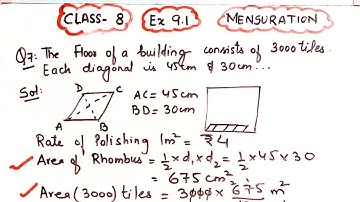 CLASS- 8 Ex 9.1 MENSURATION
Q7: The Floor of a building consists of 3000 tiles.
Each diagonal is 45cm & 30cm...
Sol:
D C
A B
AC = 45cm
BD = 30cm
Rate of Polishing 1m² = ₹4
Area of Rhombus = 1/2 × d₁ × d₂ = 1/2 × 45 × 30
= 675 cm²
Area (3000) tiles = 3000 × 675 m²